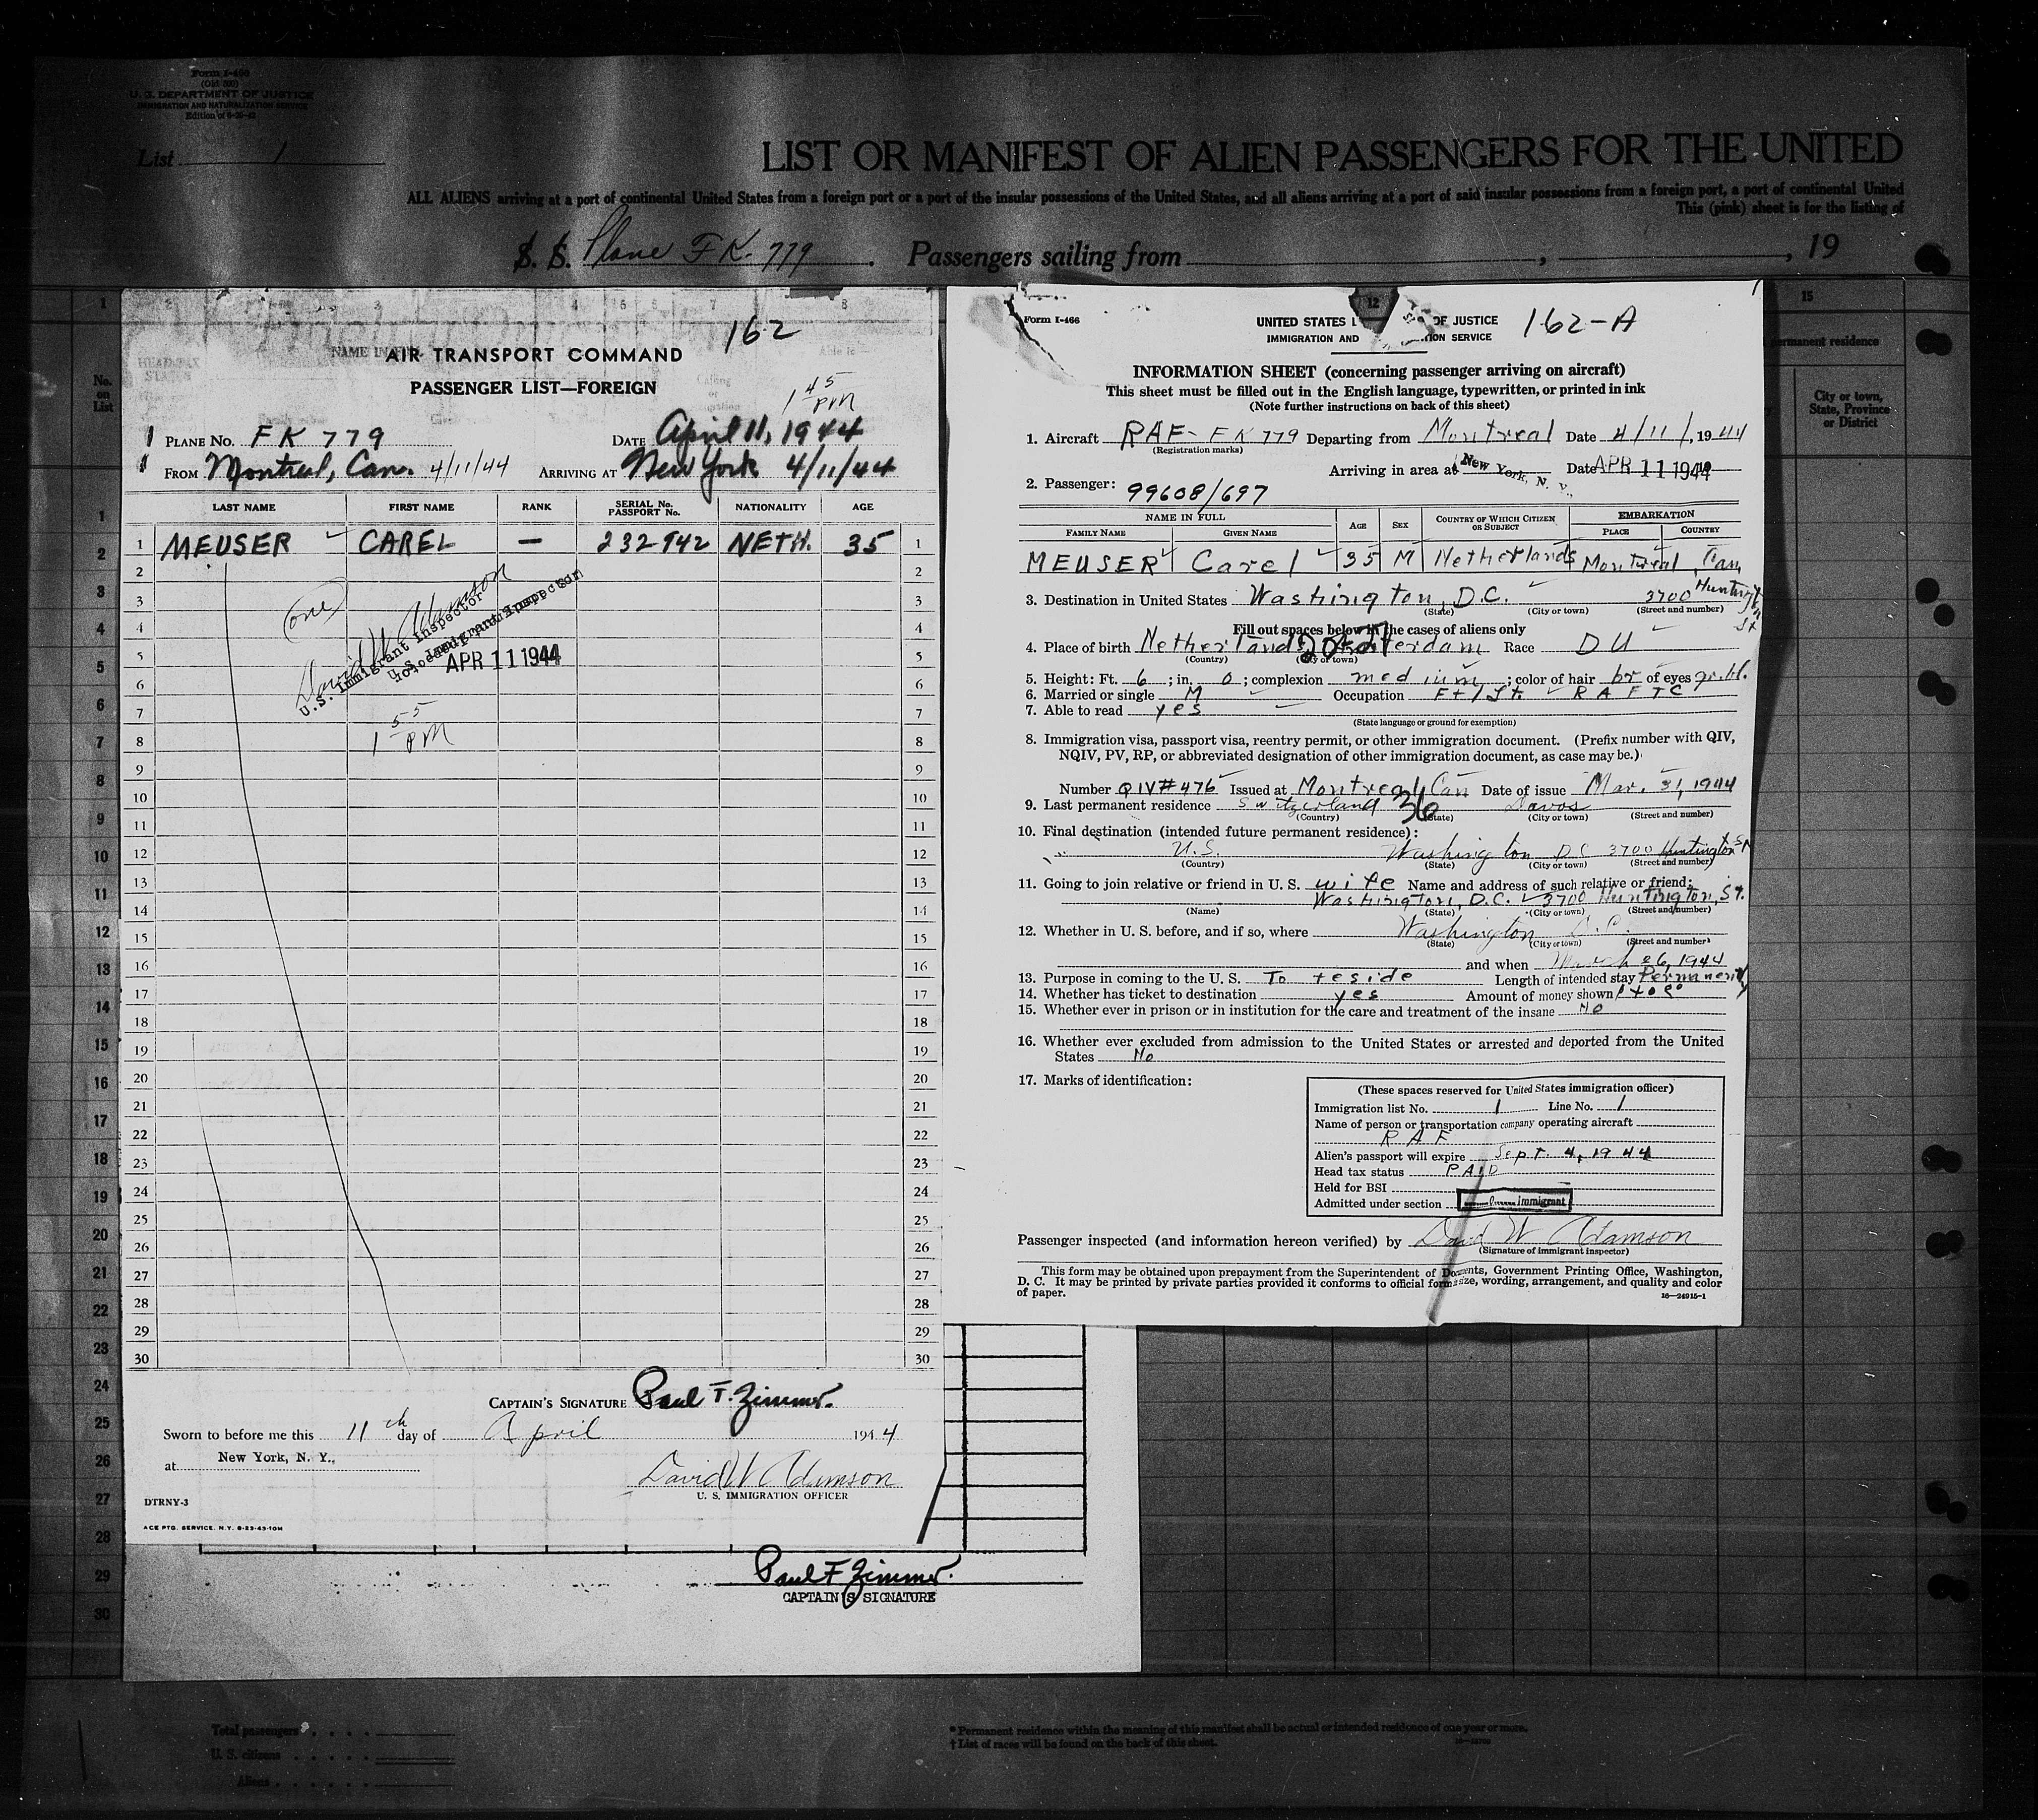 Form I-466
(Old 500)
U. S. DEPARTMENT OF JUSTICE
IMMIGRATION AND NATURALIZATION SERVICE
List 1
LIST OR MANIFEST OF ALIEN PASSENGERS FOR THE UNITED
ALL ALIENS arriving at a port of continental United States from a foreign port or a port of the insular possessions of the United States, and all aliens arriving at a port of said insular possessions from a foreign port, a port of continental United
This (pink) sheet is for the listing of
S. S. Plane FK. 779. Passengers sailing from , , 19
162
AIR TRANSPORT COMMAND
PASSENGER LIST—FOREIGN
1 45 PM
1 PLANE No. FK 779 DATE April 11, 1944
FROM Montreal, Can. 4/11/44 ARRIVING AT New York 4/11/44
LAST NAME FIRST NAME RANK SERIAL No. PASSPORT No. NATIONALITY AGE
1 MEUSER CAREL — 232942 NETH. 35 1
2 2
3 (one) 3
4 David W Adamson 4
U. S. Immigrant Inspector
5 APR 11 1944 5
6 6
7 1 55 PM 7
8 8
9 9
10 10
11 11
12 12
13 13
14 14
15 15
16 16
17 17
18 18
19 19
20 20
21 21
22 22
23 23
24 24
25 25
26 26
27 27
28 28
29 29
30 30
CAPTAIN'S SIGNATURE Paul F. Zimmer.
Sworn to before me this 11th day of April 1944
at New York, N. Y.,
David W Adamson
U. S. IMMIGRATION OFFICER
DTRNY-3
ACE PTG. SERVICE, N.Y. 8-23-43-10M
Paul F Zimmer.
CAPTAIN'S SIGNATURE
Form I-466
UNITED STATES OF JUSTICE 162-A
IMMIGRATION AND SERVICE
INFORMATION SHEET (concerning passenger arriving on aircraft)
This sheet must be filled out in the English language, typewritten, or printed in ink
(Note further instructions on back of this sheet)
1. Aircraft RAF- FK 779 Departing from Montreal Date 4/11/, 1944
(Registration marks)
Arriving in area at New York, N. Y., Date APR 11 1944
2. Passenger: 99608/697
NAME IN FULL AGE SEX COUNTRY OF WHICH CITIZEN OR SUBJECT EMBARKATION
FAMILY NAME GIVEN NAME PLACE COUNTRY
MEUSER Carel 35 M Netherlands Montreal Can
3. Destination in United States Washington, D.C. 3700 Huntington St
(State) (City or town) (Street and number)
Fill out spaces below in the cases of aliens only
4. Place of birth Netherlands Rotterdam Race DU
(Country) (City or town)
5. Height: Ft. 6; in. 0; complexion medium; color of hair br of eyes gr.bl.
6. Married or single M Occupation F t/Lt. R A F T C
7. Able to read yes
(State language or ground for exemption)
8. Immigration visa, passport visa, reentry permit, or other immigration document. (Prefix number with QIV,
NQIV, PV, RP, or abbreviated designation of other immigration document, as case may be.)
Number QIV#476 Issued at Montreal, Can Date of issue Mar. 31, 1944
9. Last permanent residence Switzerland 36 Davos
(Country) (State) (City or town) (Street and number)
10. Final destination (intended future permanent residence):
U.S. Washington DC 3700 Huntington St
(Country) (State) (City or town) (Street and number)
11. Going to join relative or friend in U. S. wife Name and address of such relative or friend:
Washington, D.C. 3700 Huntington, St.
(Name) (State) (City or town) (Street and number)
12. Whether in U. S. before, and if so, where Washington D.C.
(State) (City or town) (Street and number)
and when March 26, 1944
13. Purpose in coming to the U. S. To reside Length of intended stay Permanently
14. Whether has ticket to destination yes Amount of money shown
15. Whether ever in prison or in institution for the care and treatment of the insane No
16. Whether ever excluded from admission to the United States or arrested and deported from the United
States No
17. Marks of identification:
(These spaces reserved for United States immigration officer)
Immigration list No. 1 Line No. 1
Name of person or transportation company operating aircraft
R A F
Alien's passport will expire Sept. 4, 1944
Head tax status PAID
Held for BSI
Admitted under section immigrant
Passenger inspected (and information hereon verified) by David W Adamson
(Signature of immigrant inspector)
This form may be obtained upon prepayment from the Superintendent of Documents, Government Printing Office, Washington,
D. C. It may be printed by private parties provided it conforms to official form size, wording, arrangement, and quality and color
of paper.
16—24915-1
15
permanent residence
City or town, State, Province or District
Total passengers
U. S. citizens
Aliens
* Permanent residence within the meaning of this manifest shall be actual or intended residence of one year or more.
† List of races will be found on the back of this sheet.